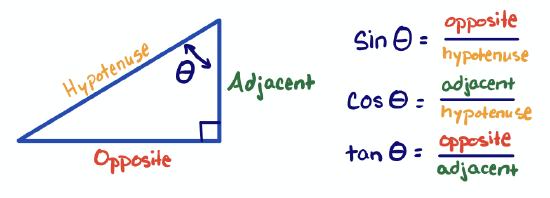 Hypotenuse
θ
Adjacent
Opposite
Sin θ = opposite / hypotenuse
cos θ = adjacent / hypotenuse
tan θ = opposite / adjacent